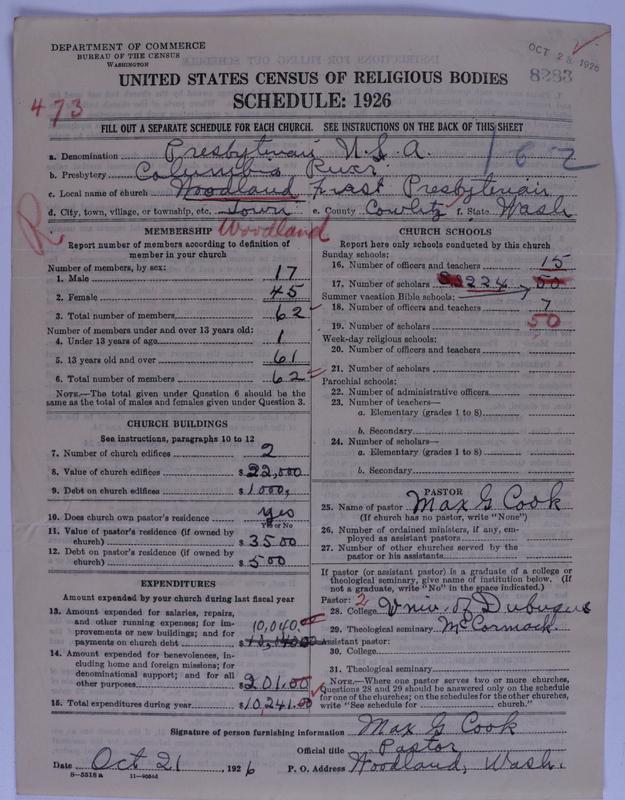 DEPARTMENT OF COMMERCE
BUREAU OF THE CENSUS
WASHINGTON
OCT 28 1926
8283
UNITED STATES CENSUS OF RELIGIOUS BODIES
473
SCHEDULE: 1926
FILL OUT A SEPARATE SCHEDULE FOR EACH CHURCH. SEE INSTRUCTIONS ON THE BACK OF THIS SHEET
162
a. Denomination Presbyterian U.S.A.
b. Presbytery Columbia River
c. Local name of church Woodland First Presbyterian
d. City, town, village, or township, etc. Town e. County Cowlitz f. State Wash
R
Woodland
MEMBERSHIP
Report number of members according to definition of member in your church
Number of members, by sex:
1. Male 17
2. Female 45
3. Total number of members, 62
Number of members under and over 13 years old:
4. Under 13 years of age 1
5. 13 years old and over 61
6. Total number of members 62
NOTE.—The total given under Question 6 should be the
same as the total of males and females given under Question 3.
CHURCH BUILDINGS
See instructions, paragraphs 10 to 12
7. Number of church edifices 2
8. Value of church edifices $ 22,000
9. Debt on church edifices $ 1000,
10. Does church own pastor's residence yes
Yes or No
11. Value of pastor's residence (if owned by
church) $ 3500
12. Debt on pastor's residence (if owned by
church) $ 500
EXPENDITURES
Amount expended by your church during last fiscal year
13. Amount expended for salaries, repairs,
and other running expenses; for im-
provements or new buildings; and for
payments on church debt $ 10,040.00
14. Amount expended for benevolences, in-
cluding home and foreign missions; for
denominational support; and for all
other purposes $ 201.00
15. Total expenditures during year $ 10,241.00
CHURCH SCHOOLS
Report here only schools conducted by this church
Sunday schools:
16. Number of officers and teachers 15
17. Number of scholars 224 50
Summer vacation Bible schools:
18. Number of officers and teachers 7
19. Number of scholars 50
Week-day religious schools:
20. Number of officers and teachers
21. Number of scholars
Parochial schools:
22. Number of administrative officers
23. Number of teachers—
a. Elementary (grades 1 to 8)
b. Secondary
24. Number of scholars—
a. Elementary (grades 1 to 8)
b. Secondary
PASTOR
25. Name of pastor Max G Cook
(If church has no pastor, write "None")
26. Number of ordained ministers, if any, em-
ployed as assistant pastors
27. Number of other churches served by the
pastor or his assistants
If pastor (or assistant pastor) is a graduate of a college or
theological seminary, give name of institution below. (If
not a graduate, write "No" in the space indicated.)
Pastor: 2
28. College Univ. of Dubuque
29. Theological seminary McCormack
Assistant pastor:
30. College
31. Theological seminary
NOTE.—Where one pastor serves two or more churches,
Questions 28 and 29 should be answered only on the schedule
for one of the churches; on the schedules for the other churches,
write "See schedule for church."
Signature of person furnishing information Max G Cook
Official title Pastor
Date Oct 21, 1926 P. O. Address Woodland, Wash.
8—5518 a